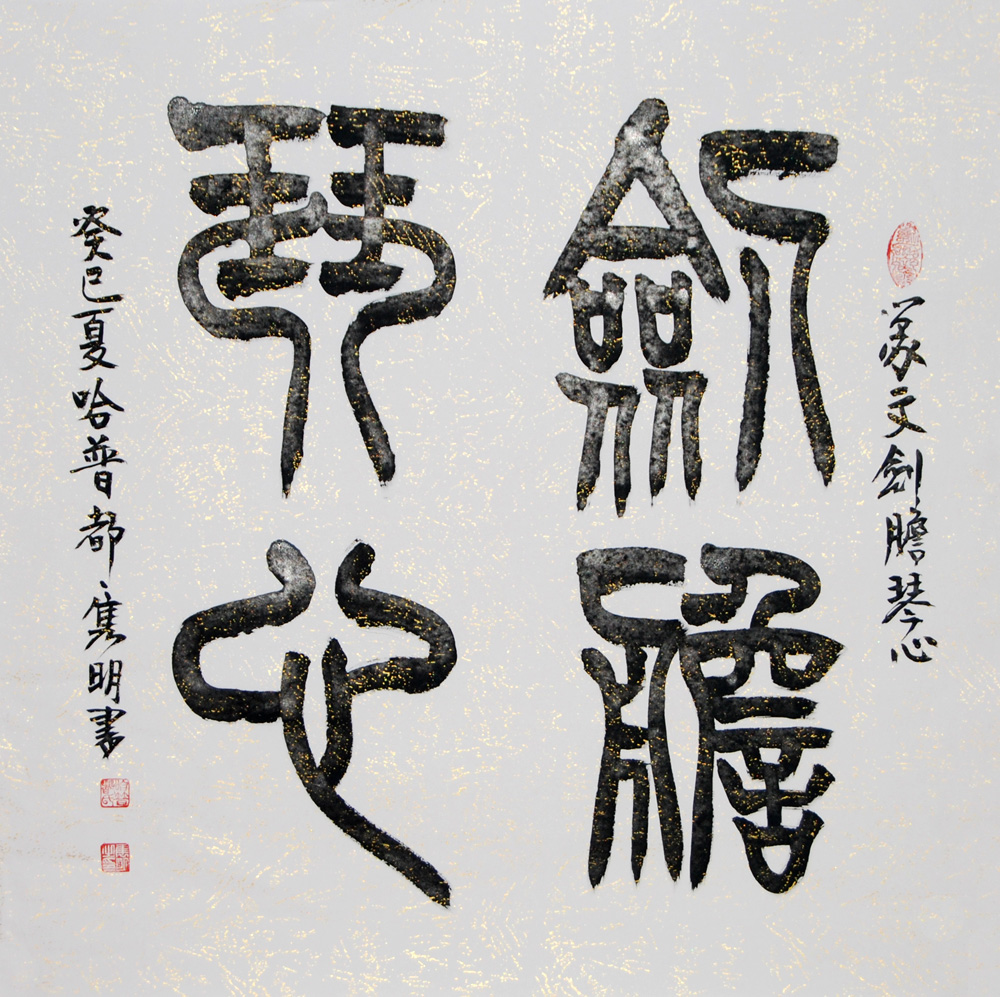 篆文剑膽琴心
劍膽
琴心
癸巳夏哈普都·隽明書